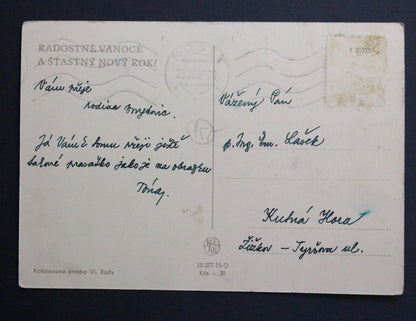 RADOSTNÉ VÁNOCE
A ŠŤASTNÝ NOVÝ ROK!
MOST
Vám přeje
rodina
Já Vám k tomu přeji ještě
takové prasátko jako je na obrázku
Vážený Pán
p. Ing. Em. Lašek
Kutná Hora
Žižkov - Tyršova ul.
Kolorovaná kresba Vl. Rady
10-377-11-O
Kčs -.30